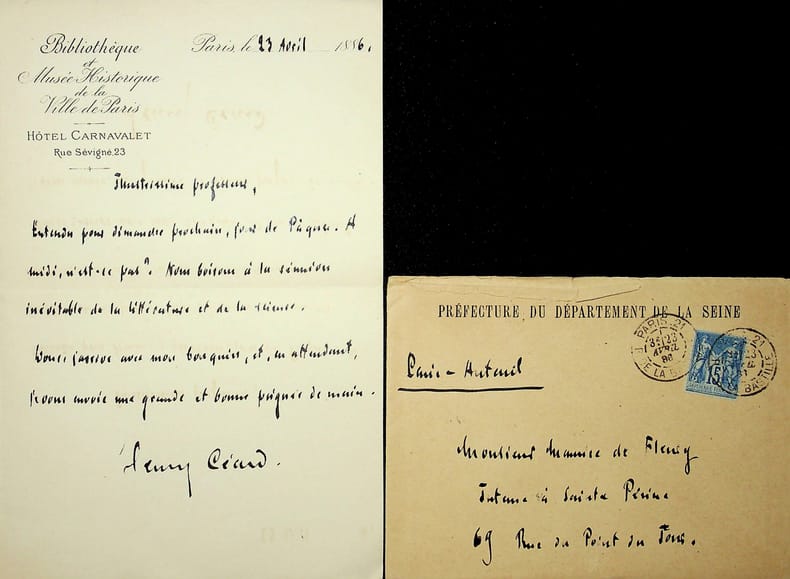 Bibliothèque
et
Musée Historique
de la
Ville de Paris
HÔTEL CARNAVALET
Rue Sévigné, 23
Paris, le 23 Avril 1886.
Illustrissime professeur,
Entendu pour dimanche prochain, jour de Pâques. A
midi, n'est-ce pas? Nous boirons à la réunion
inévitable de la littérature et de la science.
Donc, j'arrive avec mon bouquin, et, en attendant,
je vous envoie une grande et bonne poignée de main.
Henry Céard.
PRÉFECTURE DU DÉPARTEMENT DE LA SEINE
PARIS 21
23
AVRIL
86
PARIS 21
BASTILLE
15
Paris-Auteuil
Monsieur Maurice de Fleury
Interne à Sainte Périne
69 Rue du Point du Jour.